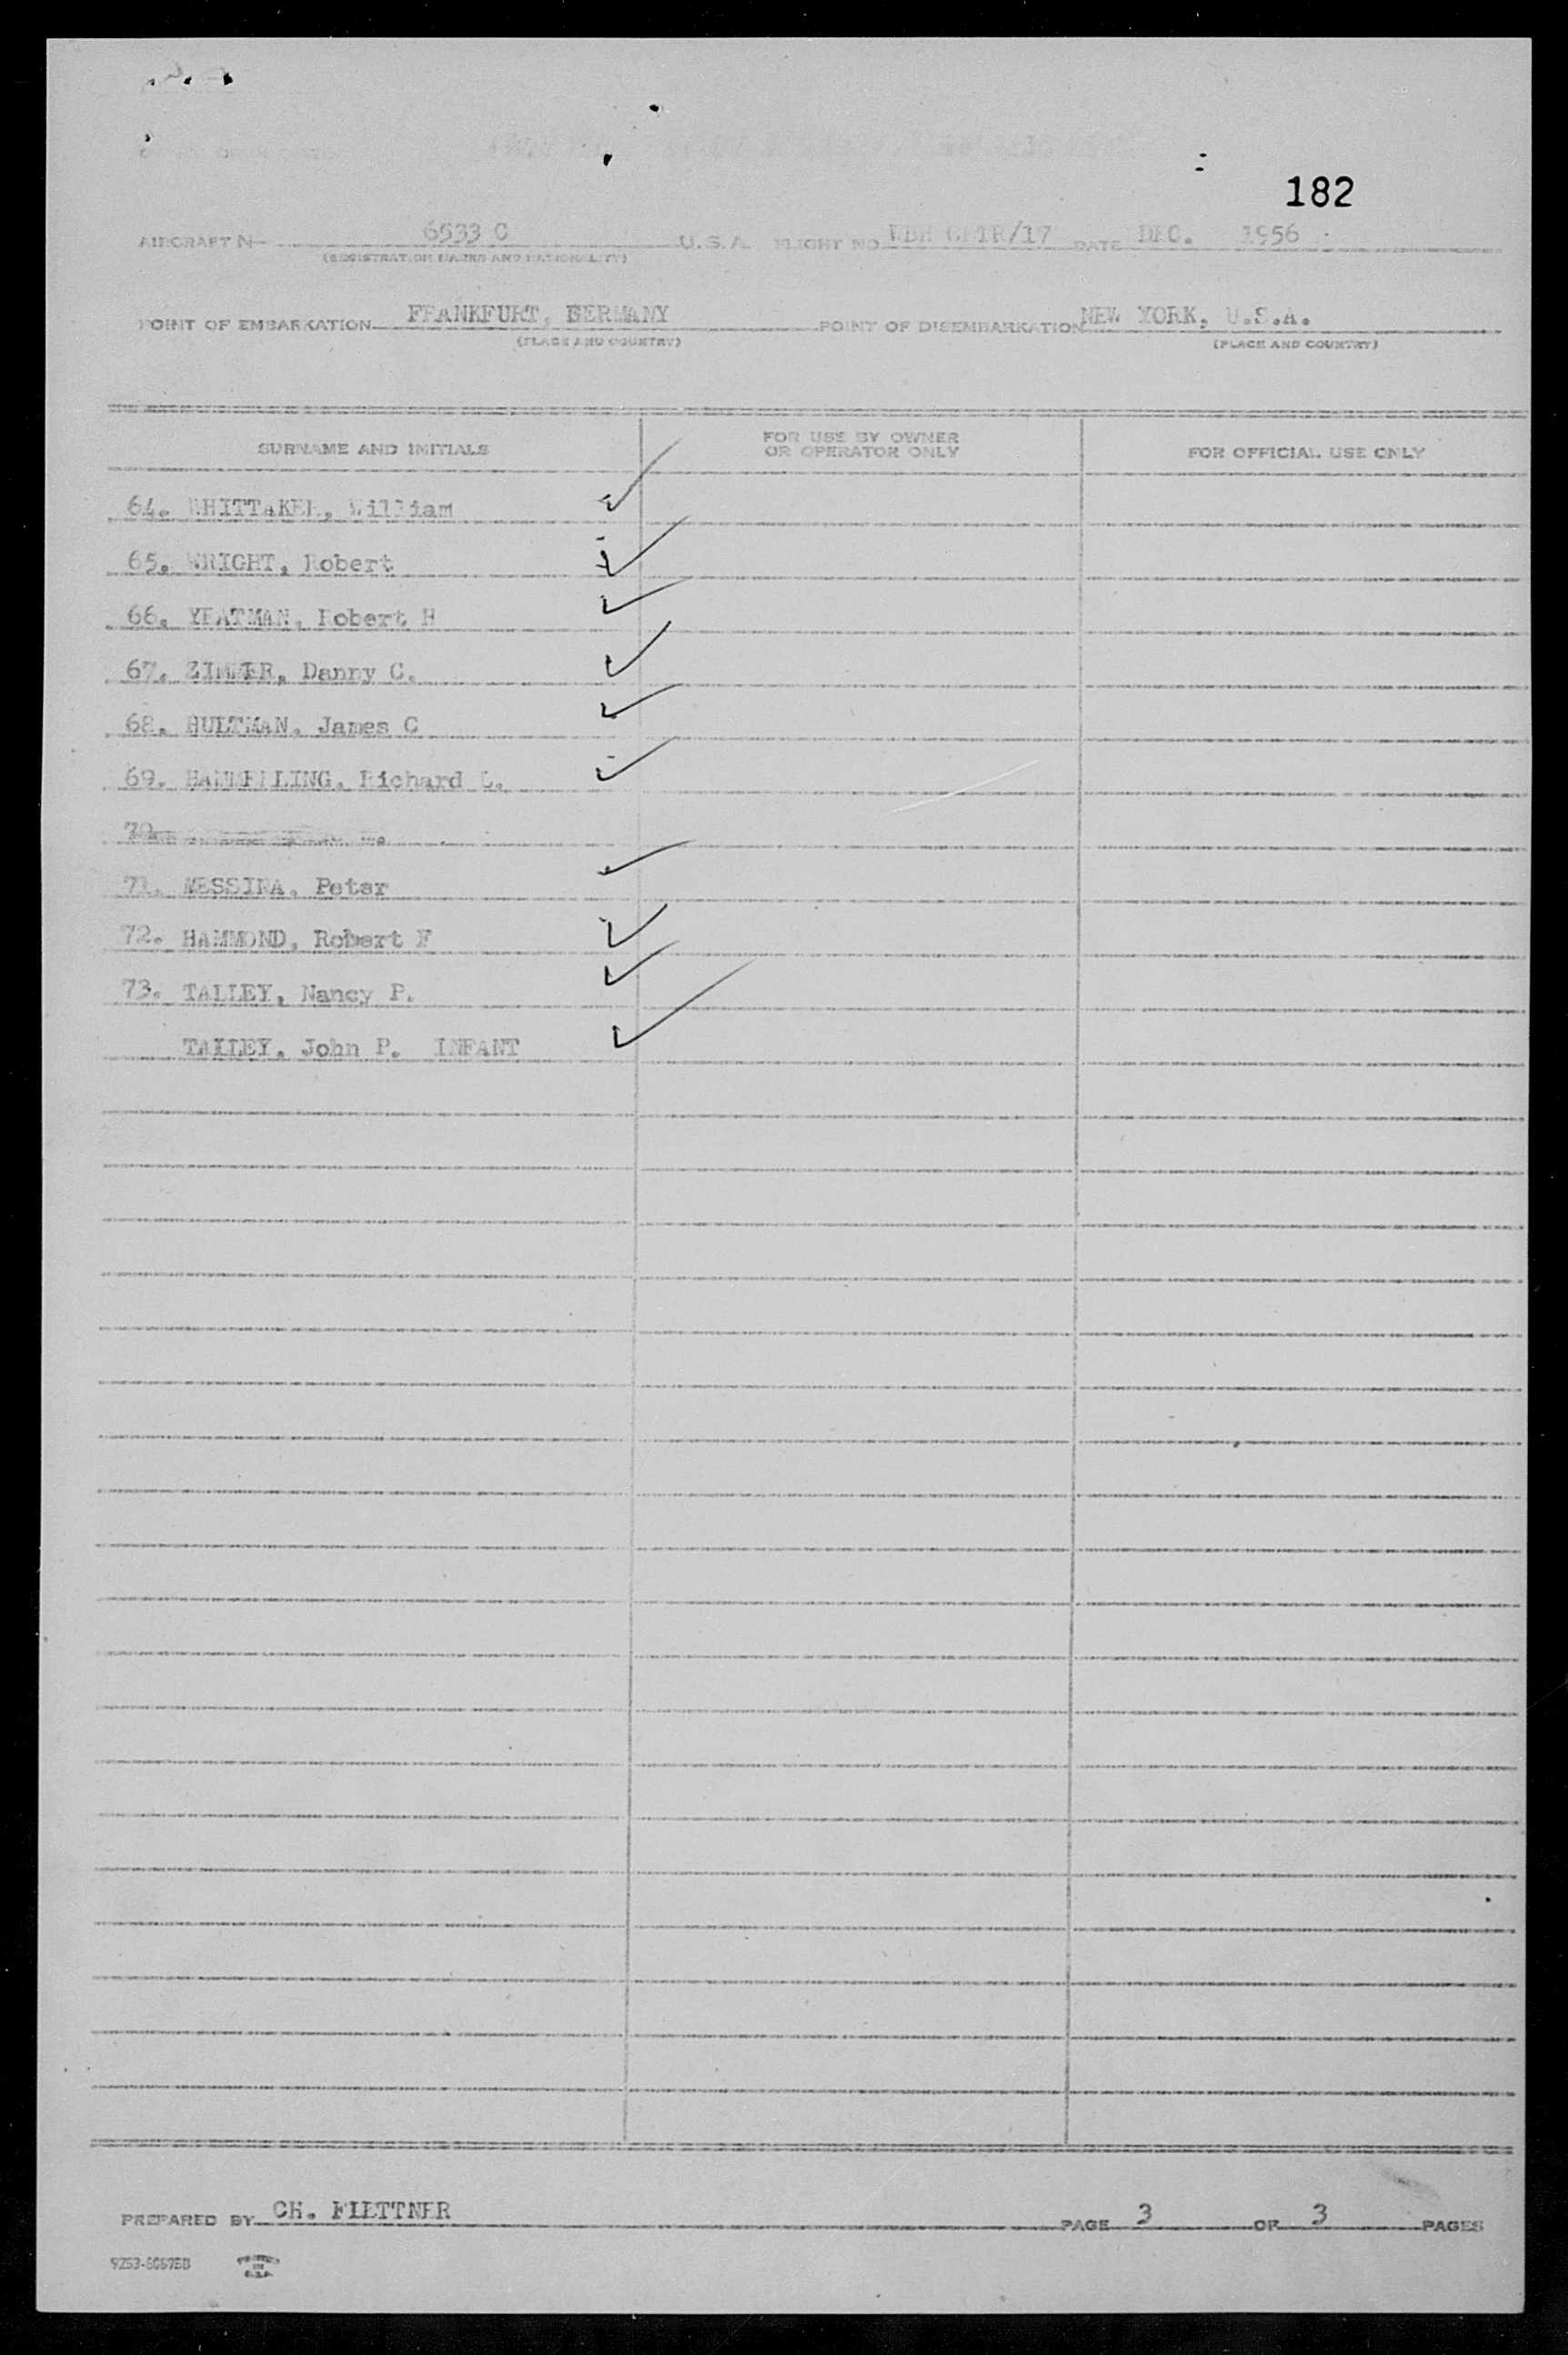 182
AIRCRAFT N- 6533 C U.S.A. FLIGHT NO /17 DATE DEC. 1956
(REGISTRATION MARKS AND NATIONALITY)
POINT OF EMBARKATION FRANKFURT, GERMANY POINT OF DISEMBARKATION NEW YORK, U.S.A.
(PLACE AND COUNTRY) (PLACE AND COUNTRY)
SURNAME AND INITIALS FOR USE BY OWNER OR OPERATOR ONLY FOR OFFICIAL USE ONLY
64. WHITTAKER, William
65. WRIGHT, Robert
66. YEATMAN, Robert H
67. ZIMMER, Danny C.
68. HULTMAN, James C
69. Richard L.
70.
71. MESSINA, Peter
72. HAMMOND, Robert F
73. TALLEY, Nancy P.
TALLEY, John P. INFANT
PREPARED BY CH. PAGE 3 OF 3 PAGES
PRINTED
IN
U.S.A.